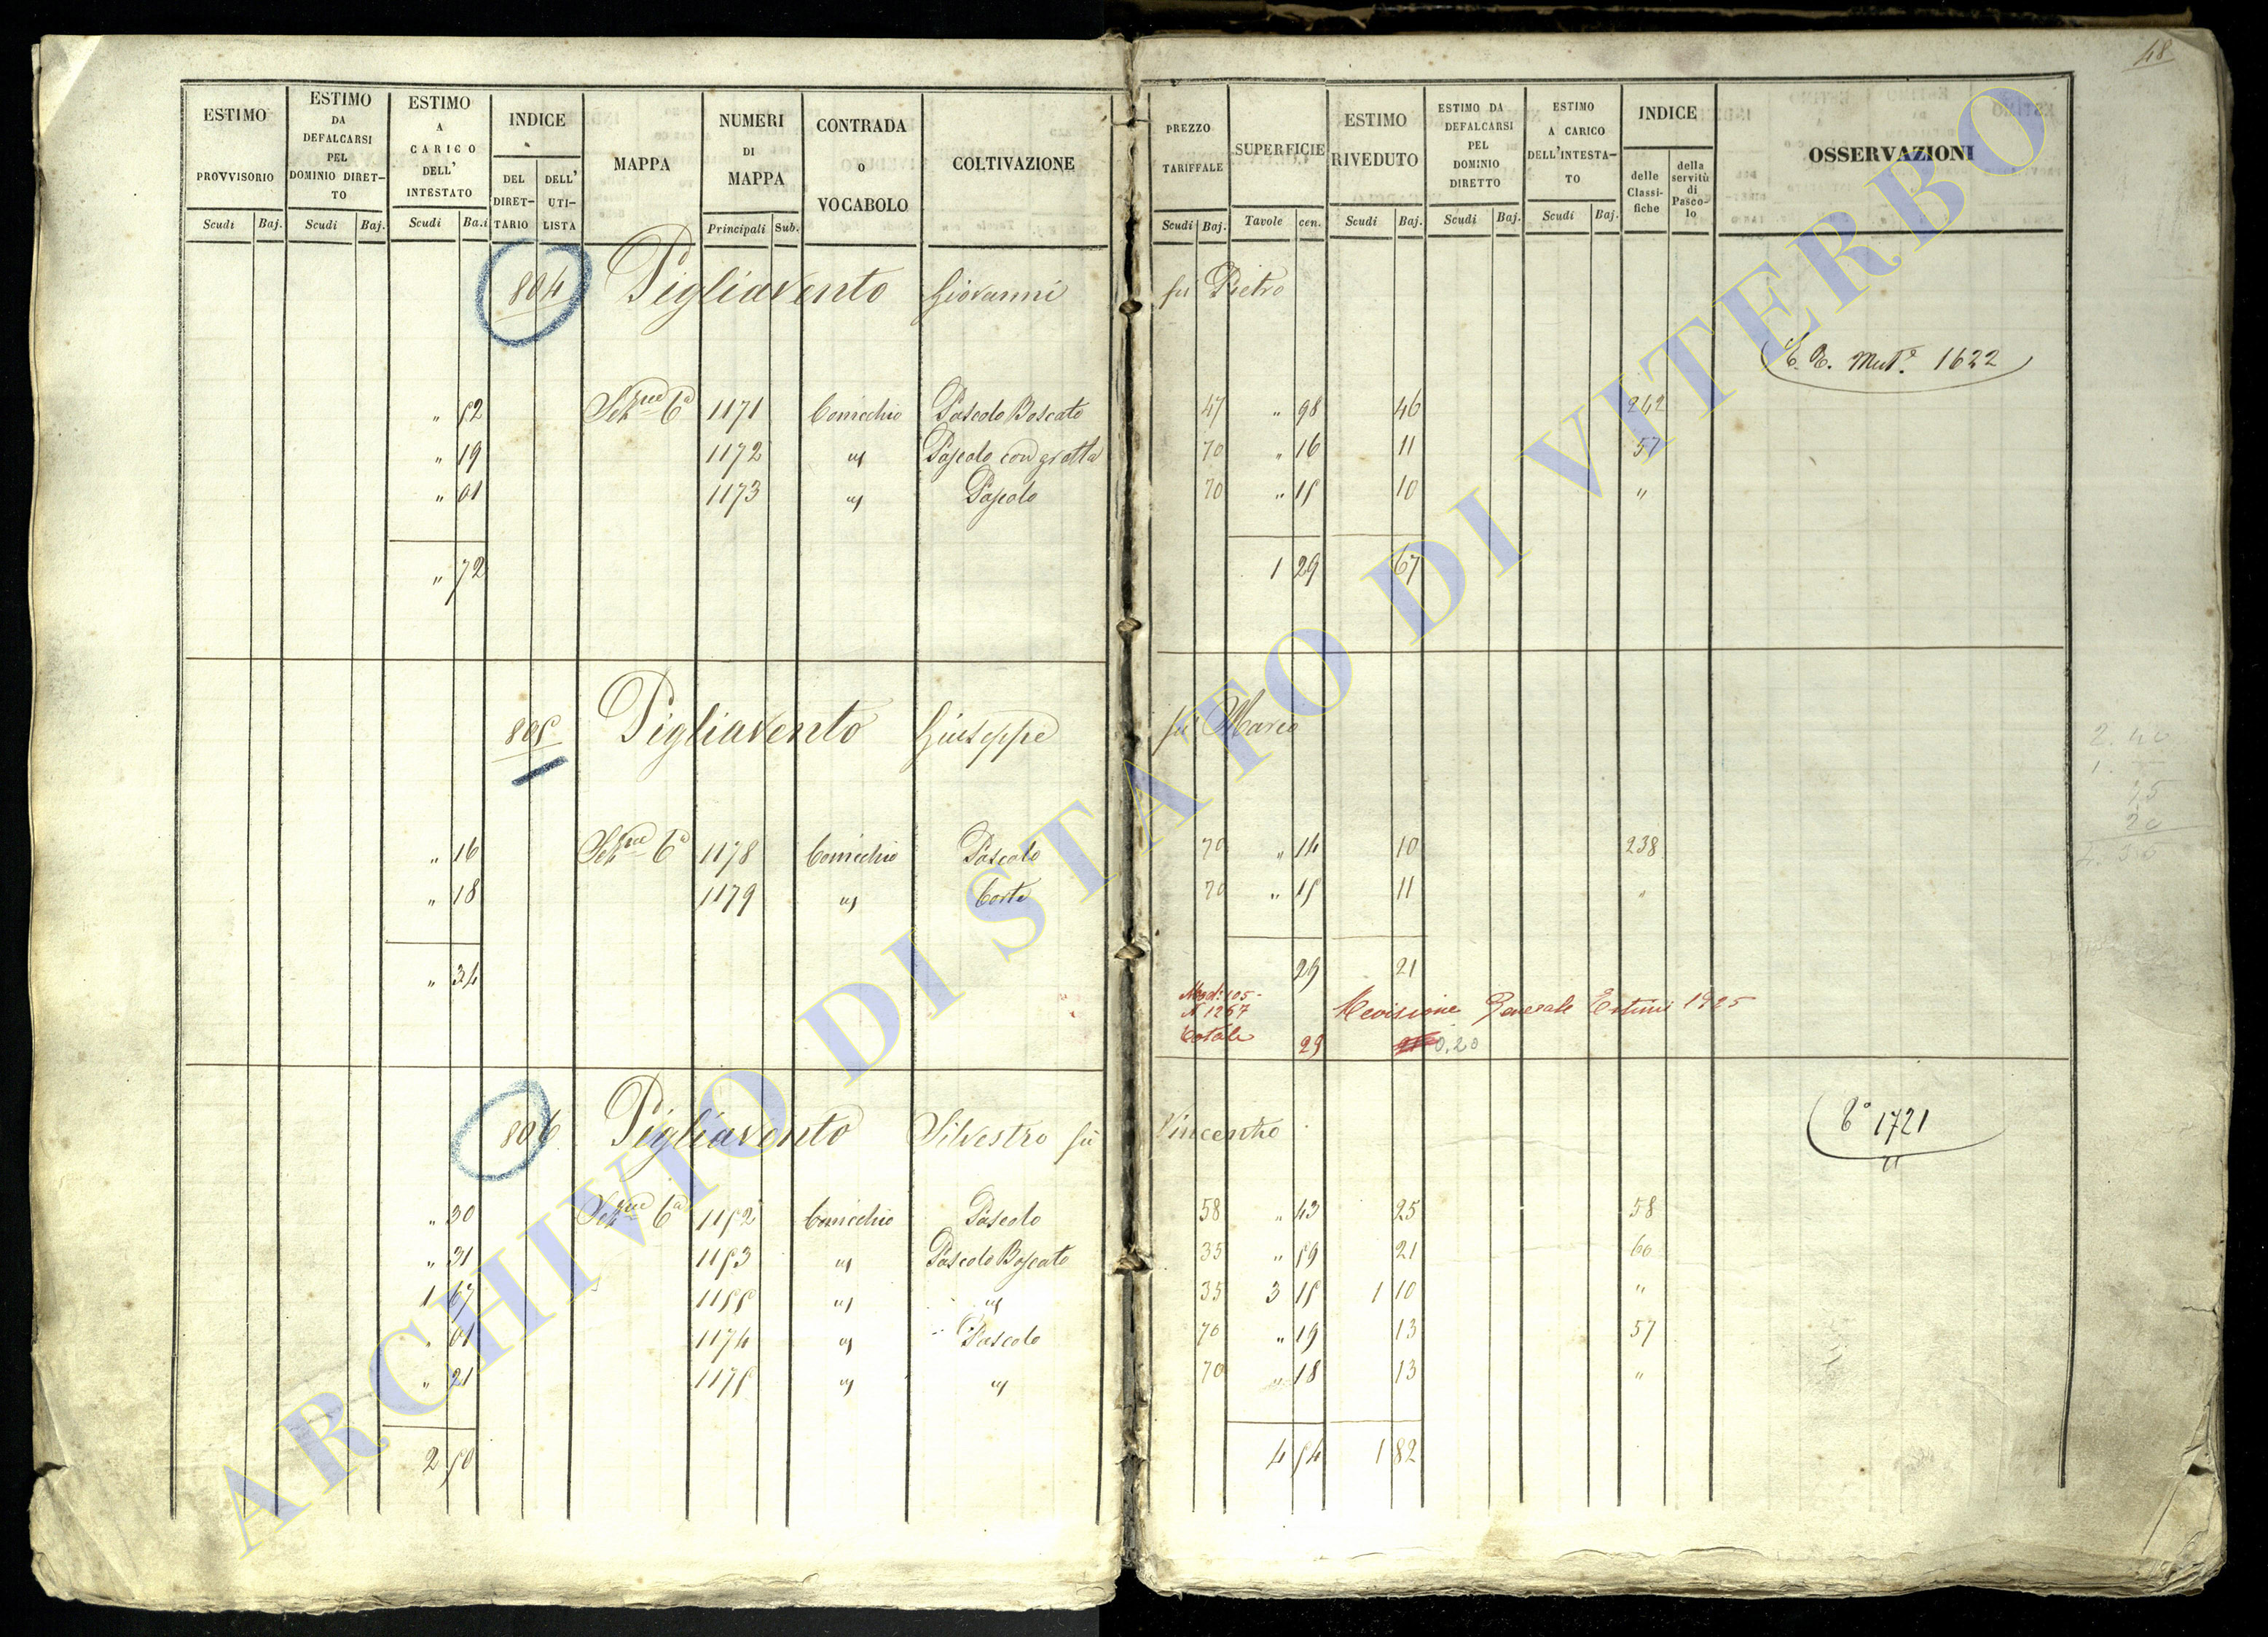 48
ESTIMO PROVVISORIO
ESTIMO DA DEFALCARSI PEL DOMINIO DIRET- TO
ESTIMO A CARICO DELL' INTESTATO
INDICE
DEL DIRET- TARIO
DELL' UTI- LISTA
MAPPA
NUMERI DI MAPPA
CONTRADA O VOCABOLO
COLTIVAZIONE
PREZZO TARIFFALE
SUPERFICIE
ESTIMO RIVEDUTO
ESTIMO DA DEFALCARSI PEL DOMINIO DIRETTO
ESTIMO A CARICO DELL'INTESTA- TO
INDICE
delle Classi- fiche
della servitù di Pasco- lo
OSSERVAZIONI
Scudi Baj. Scudi Baj. Scudi Ba.i Principali Sub. Scudi Baj. Tavole cen. Scudi Baj. Scudi Baj. Scudi Baj.
804 Pigliavento Giovanni fu Pietro
Mut.e 1622
" 52 Sez.ne 6a 1171 Cornecchio Pascolo Boscato 47 " 98 46 242
" 19 1172 " Pascolo con grotta 70 " 16 11 57
" 01 1173 " Pascolo 70 " 15 10 "
" 72 1 29 67
805 Pigliavento Giuseppe fu Marco
" 16 Sez.ne 6a 1178 Cornecchio Pascolo 70 " 14 10 238
" 18 1179 " Corte 70 " 15 11 "
" 34 29 21
Mod: 105-
N 1267 Revisione Generale Estimi 1925
Totale 29 0.20
806 Pigliavento Silvestro fu Vincenzo
1721
" 30 Sez.ne 6a 1152 Cornecchio Pascolo 58 " 43 25 58
" 31 1153 " Pascolo Boscato 35 " 59 21 60
1 67 1155 " " 35 3 15 1 10 "
" 01 1174 " Pascolo 70 " 19 13 57
" 21 1175 " " 70 " 18 13 "
2 50 4 54 1 82
ARCHIVIO DI STATO DI VITERBO